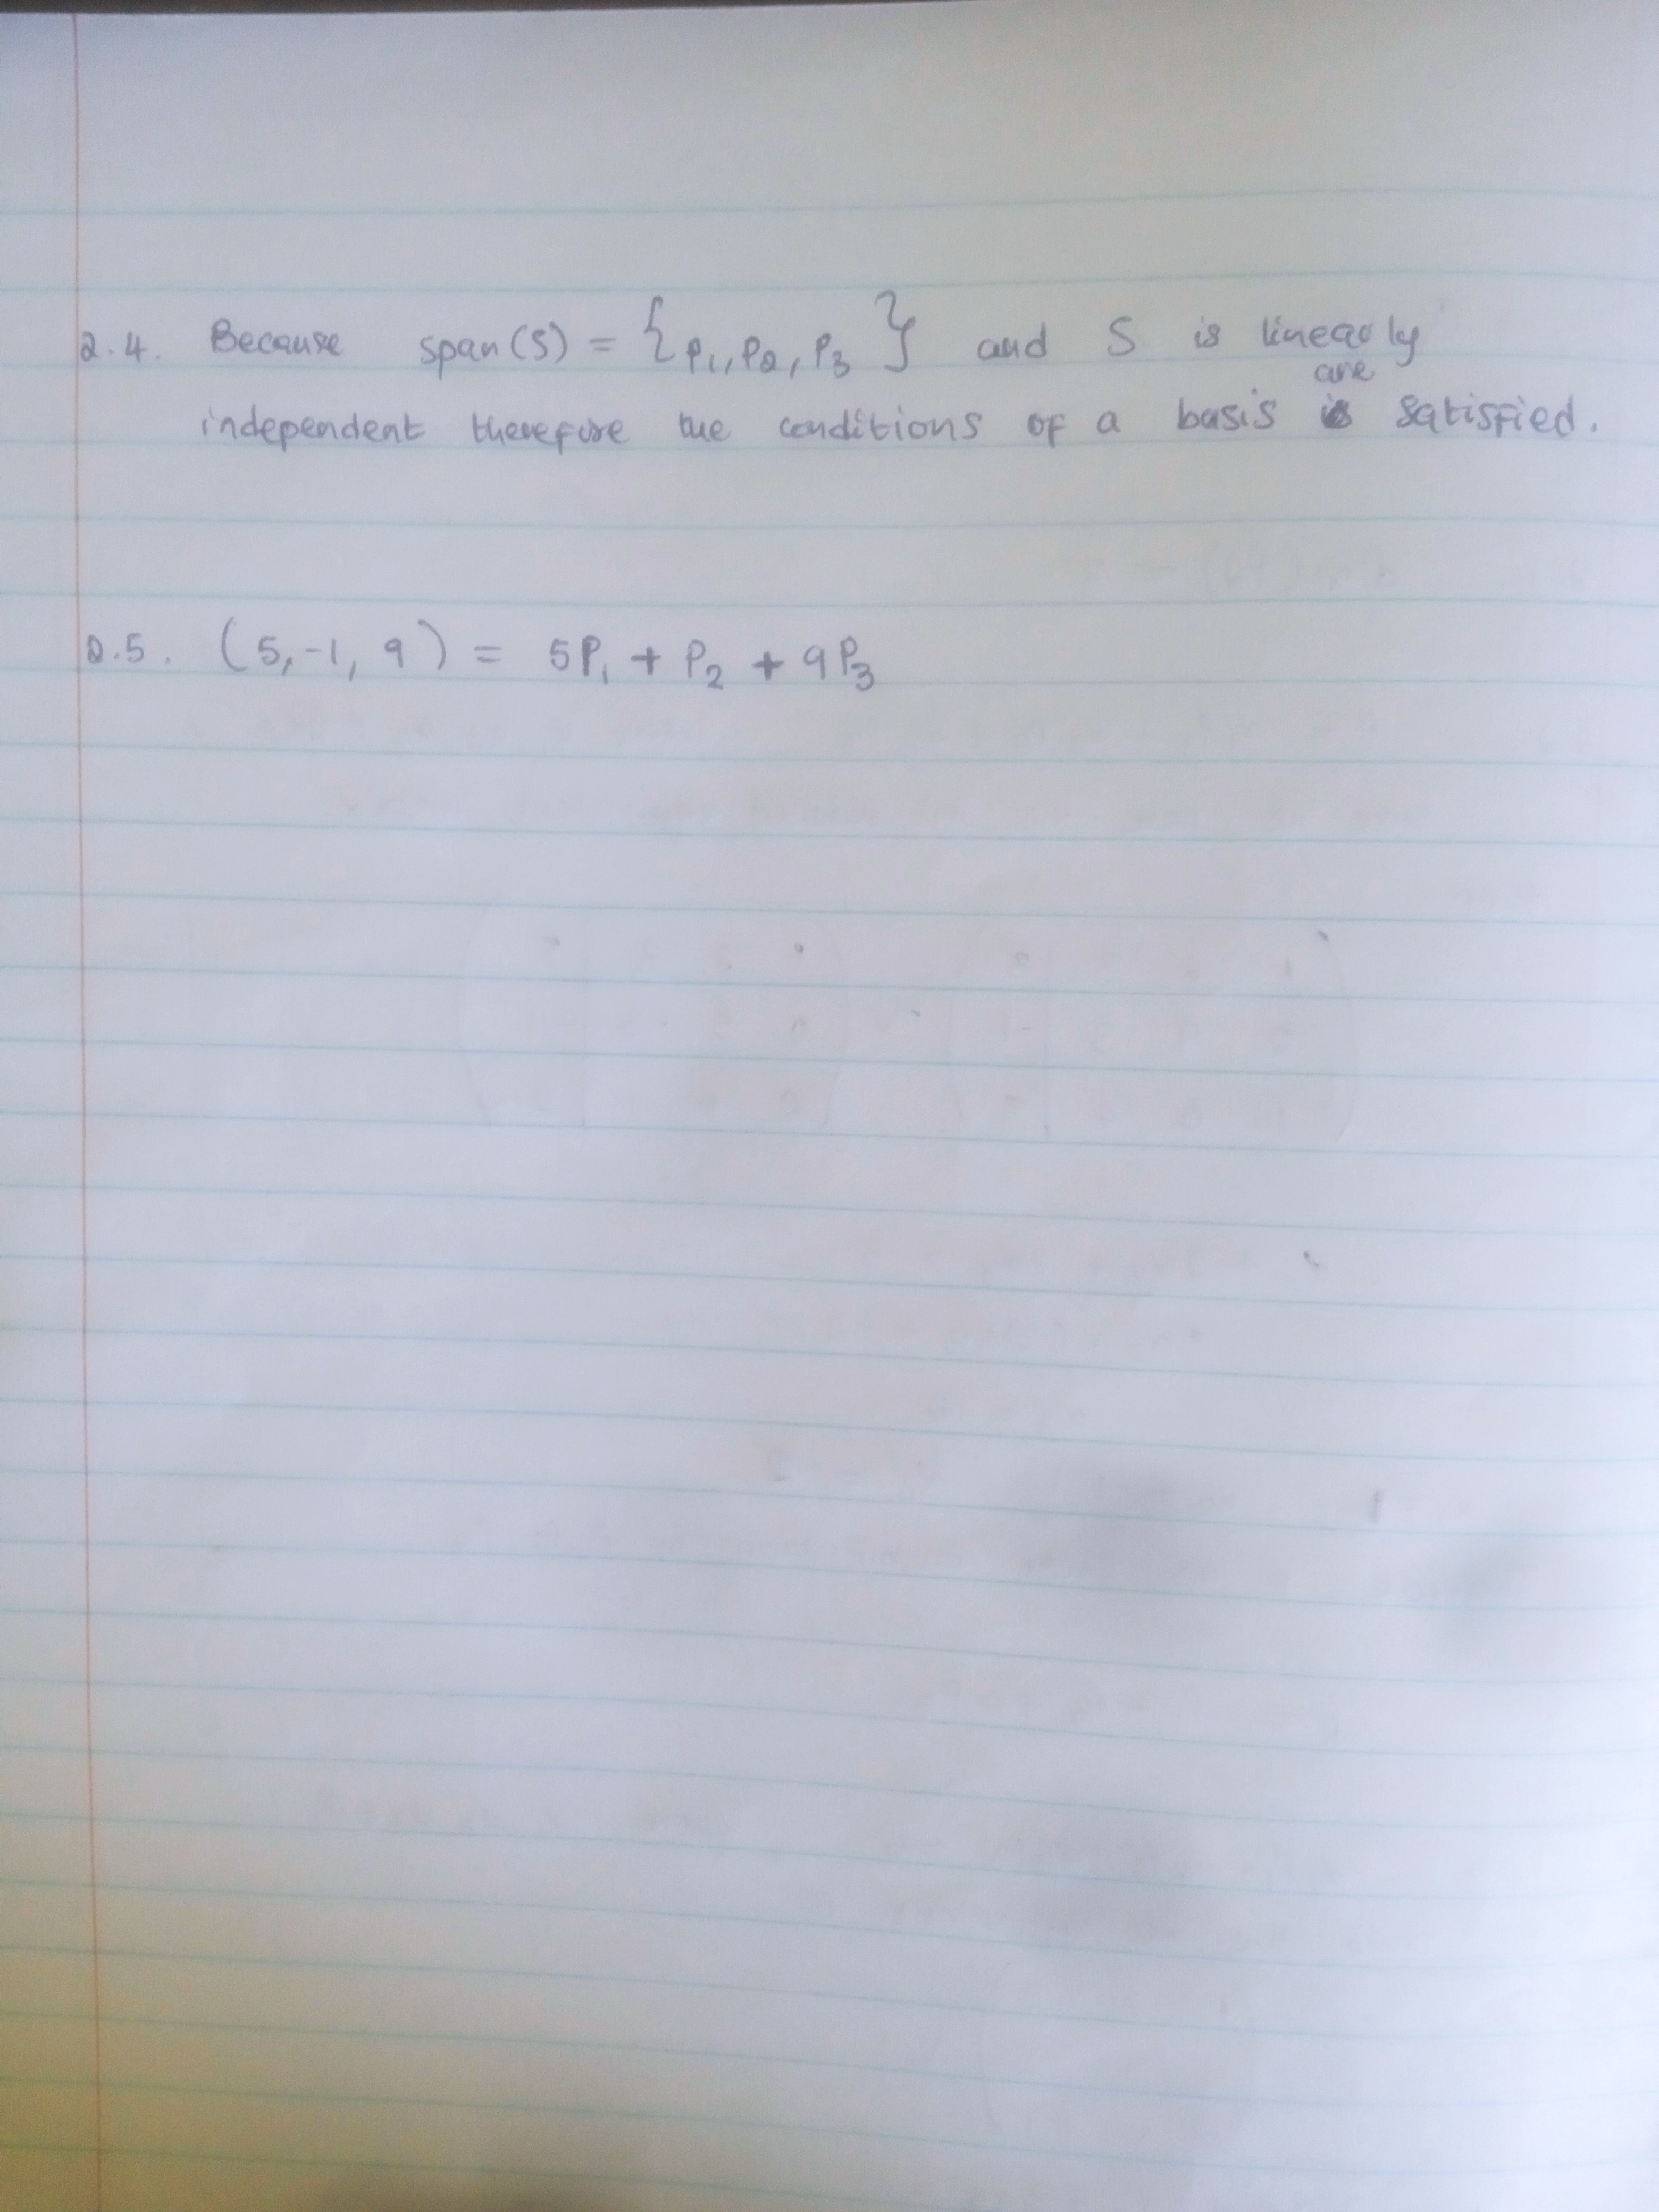 2.4. Because span(S) = {p₁, p₂, p₃} and S is linearly
are
independent therefore the conditions of a basis is satisfied.
2.5. (5, -1, 9) = 5P₁ + P₂ + 9P₃